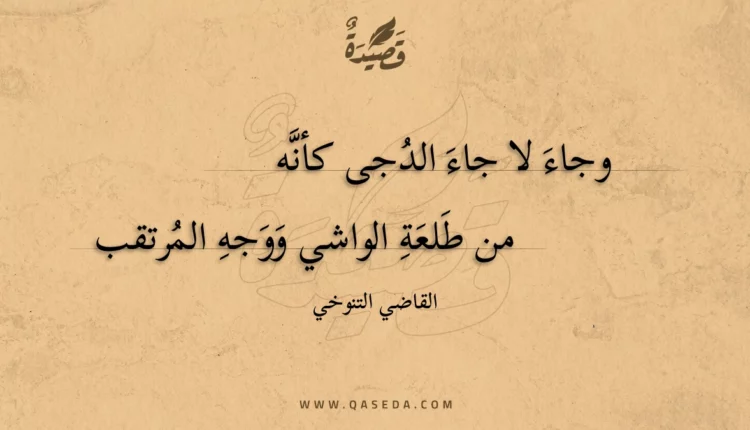 قَصِيْدَةٌ
وجاءَ لا جاءَ الدُجى كأنَّه
من طَلعَةِ الواشي وَوَجهِ المُرتقب
القاضي التنوخي
WWW.QASEDA.COM